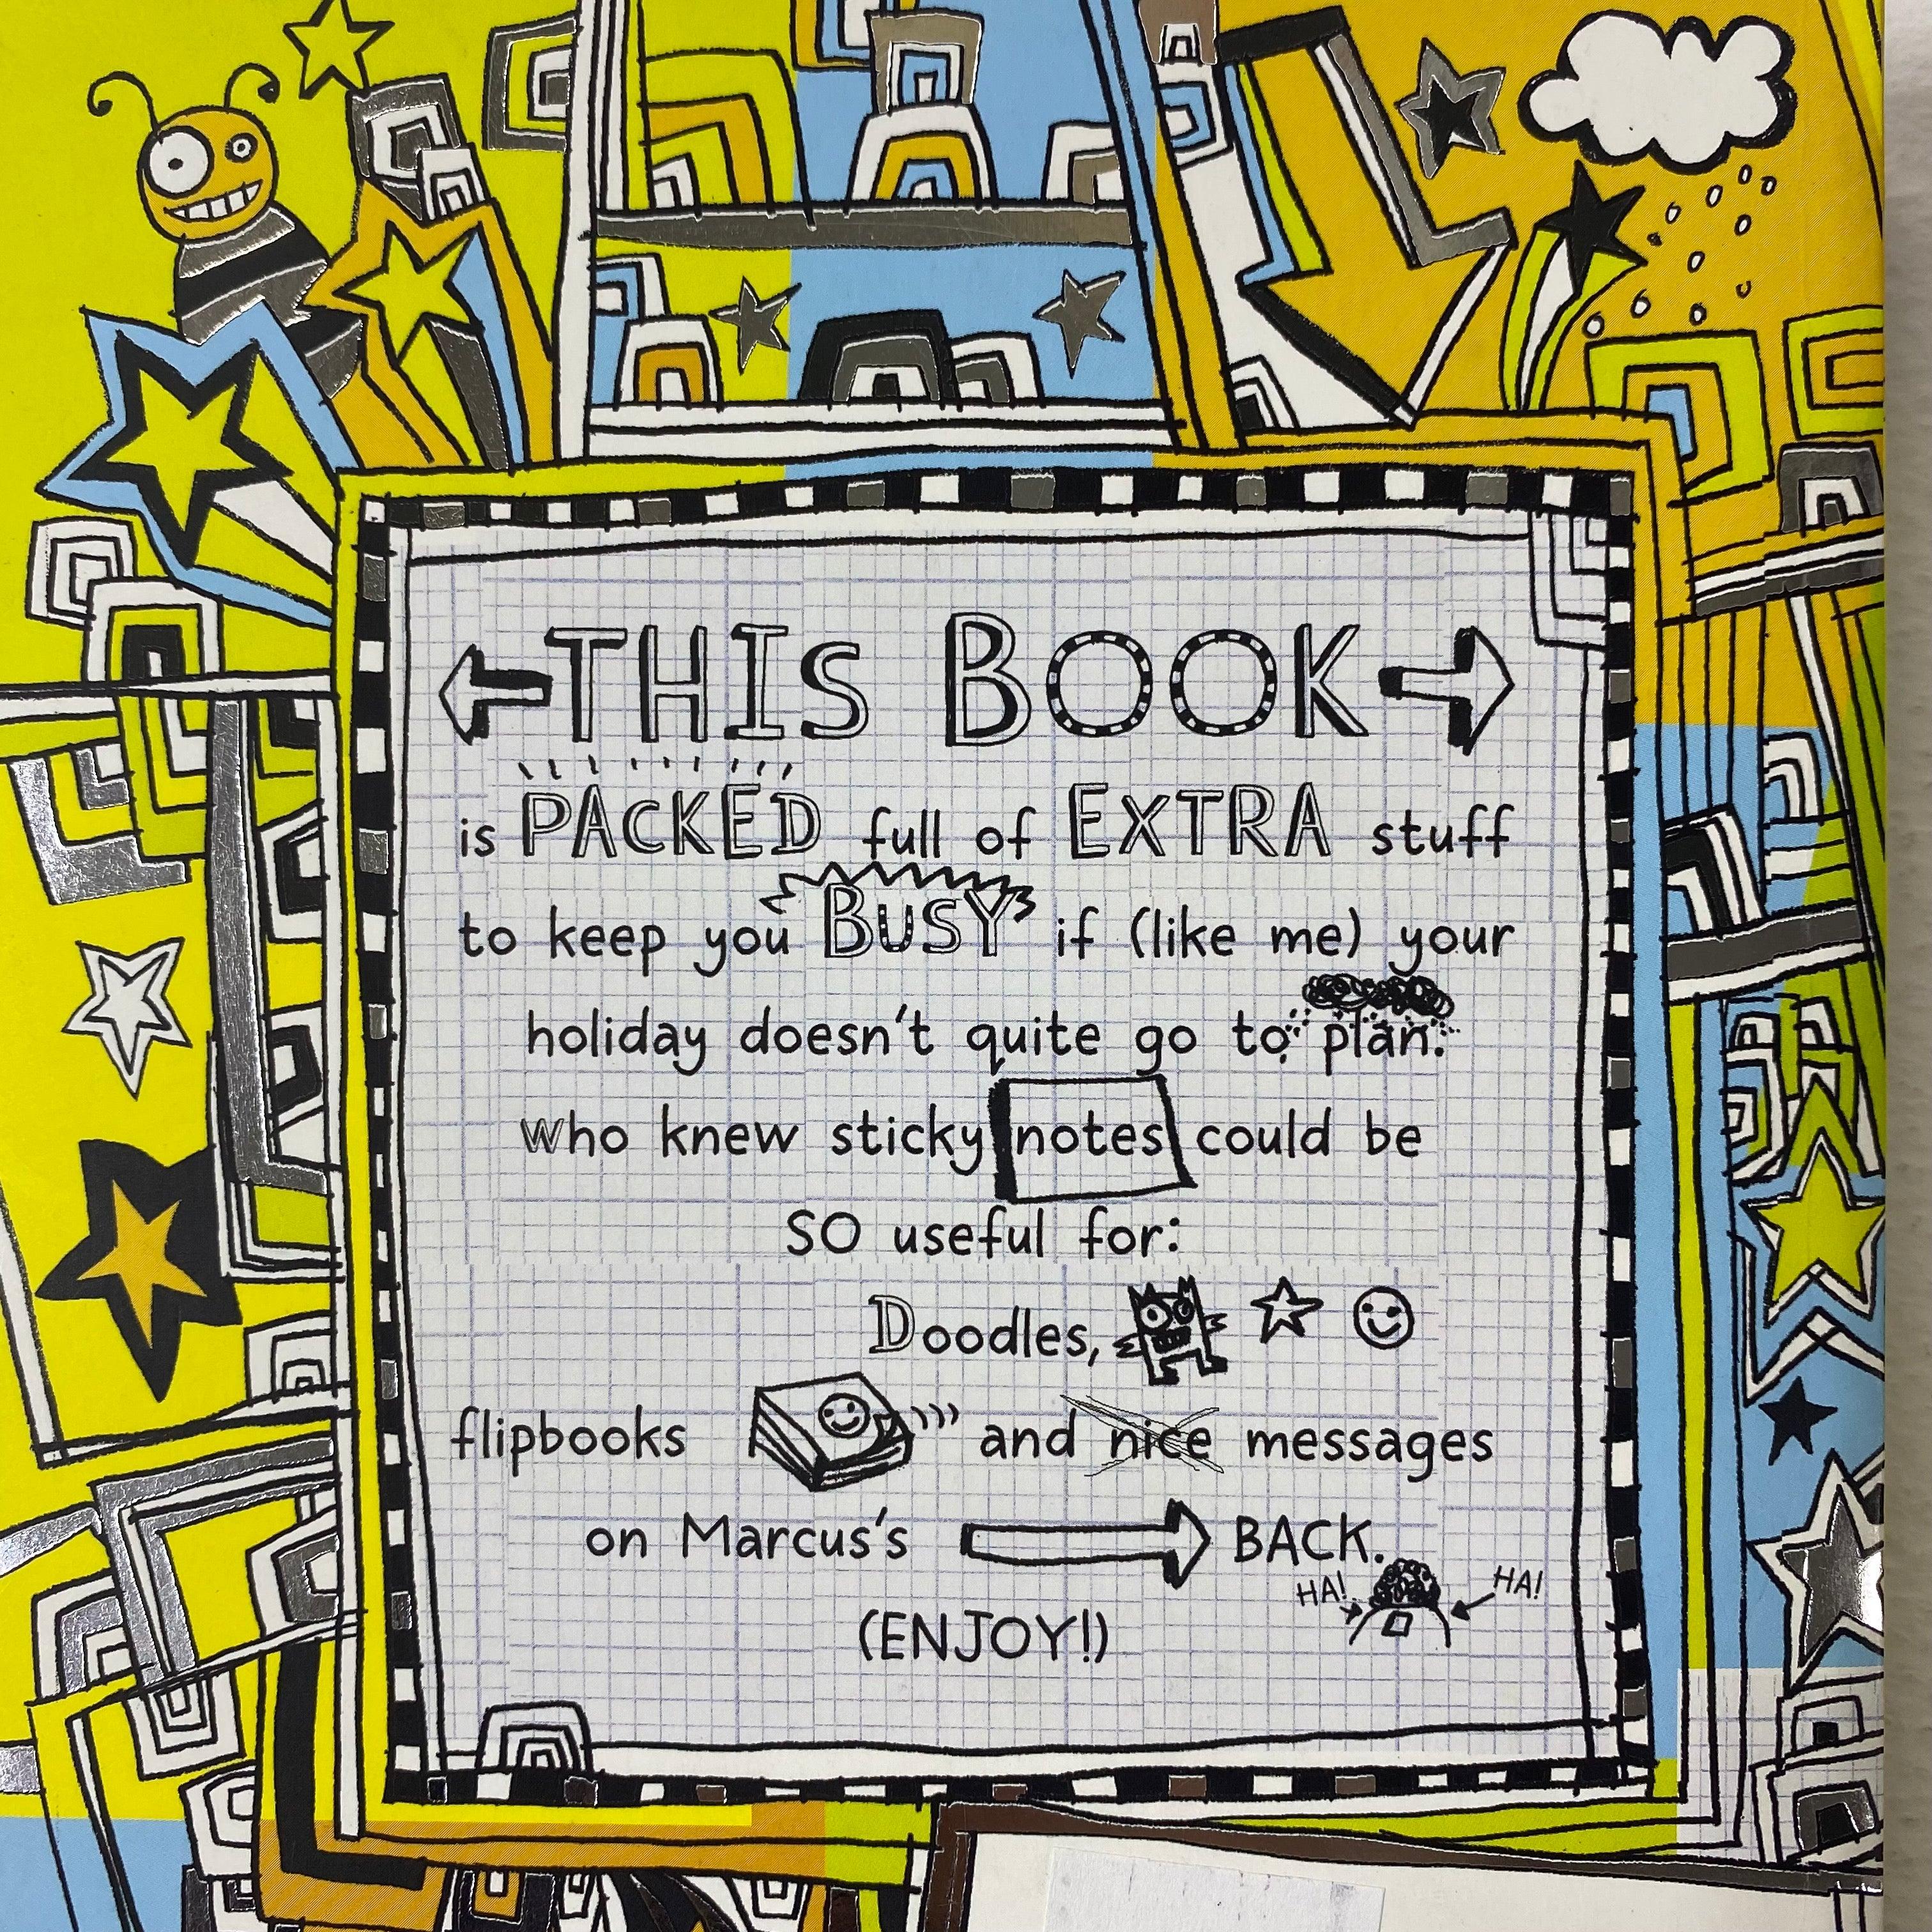 THIS BOOK
is PACKED full of EXTRA stuff
to keep you BUSY if (like me) your
holiday doesn't quite go to plan.
Who knew sticky notes could be
SO useful for:
Doodles,
flipbooks and nice messages
on Marcus's BACK.
HA! HA!
(ENJOY!)